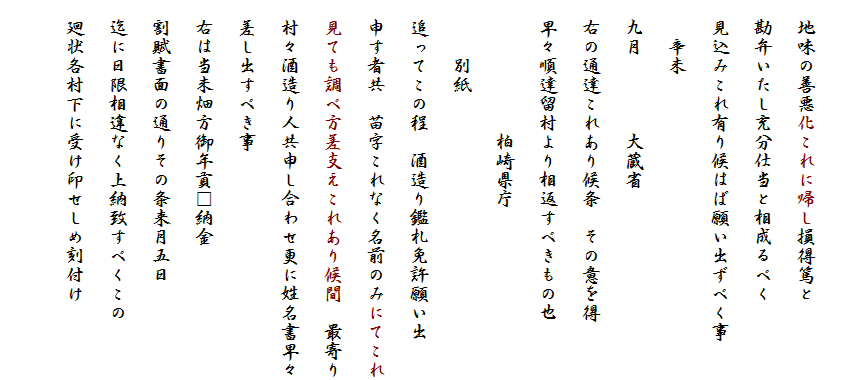 地味の善悪化これに帰し損得篤と
勘弁いたし充分仕当と相成るべく
見込みこれ有り候はば願い出ずべく事
辛未
九月　　大蔵省
右の通達これあり候条　その意を得
早々順達留村より相返すべきもの也
柏崎県庁
別紙
追ってこの程　酒造り鑑札免許願い出
申す者共　苗字これなく名前のみにてこれ
見ても調べ方差支えこれあり候間　最寄り
村々酒造り人共申し合わせ更に姓名書早々
差し出すべき事
右は当未畑方御年貢□納金
割賦書面の通りその条来月五日
迄に日限相違なく上納致すべくこの
廻状各村下に受け印せしめ刻付け